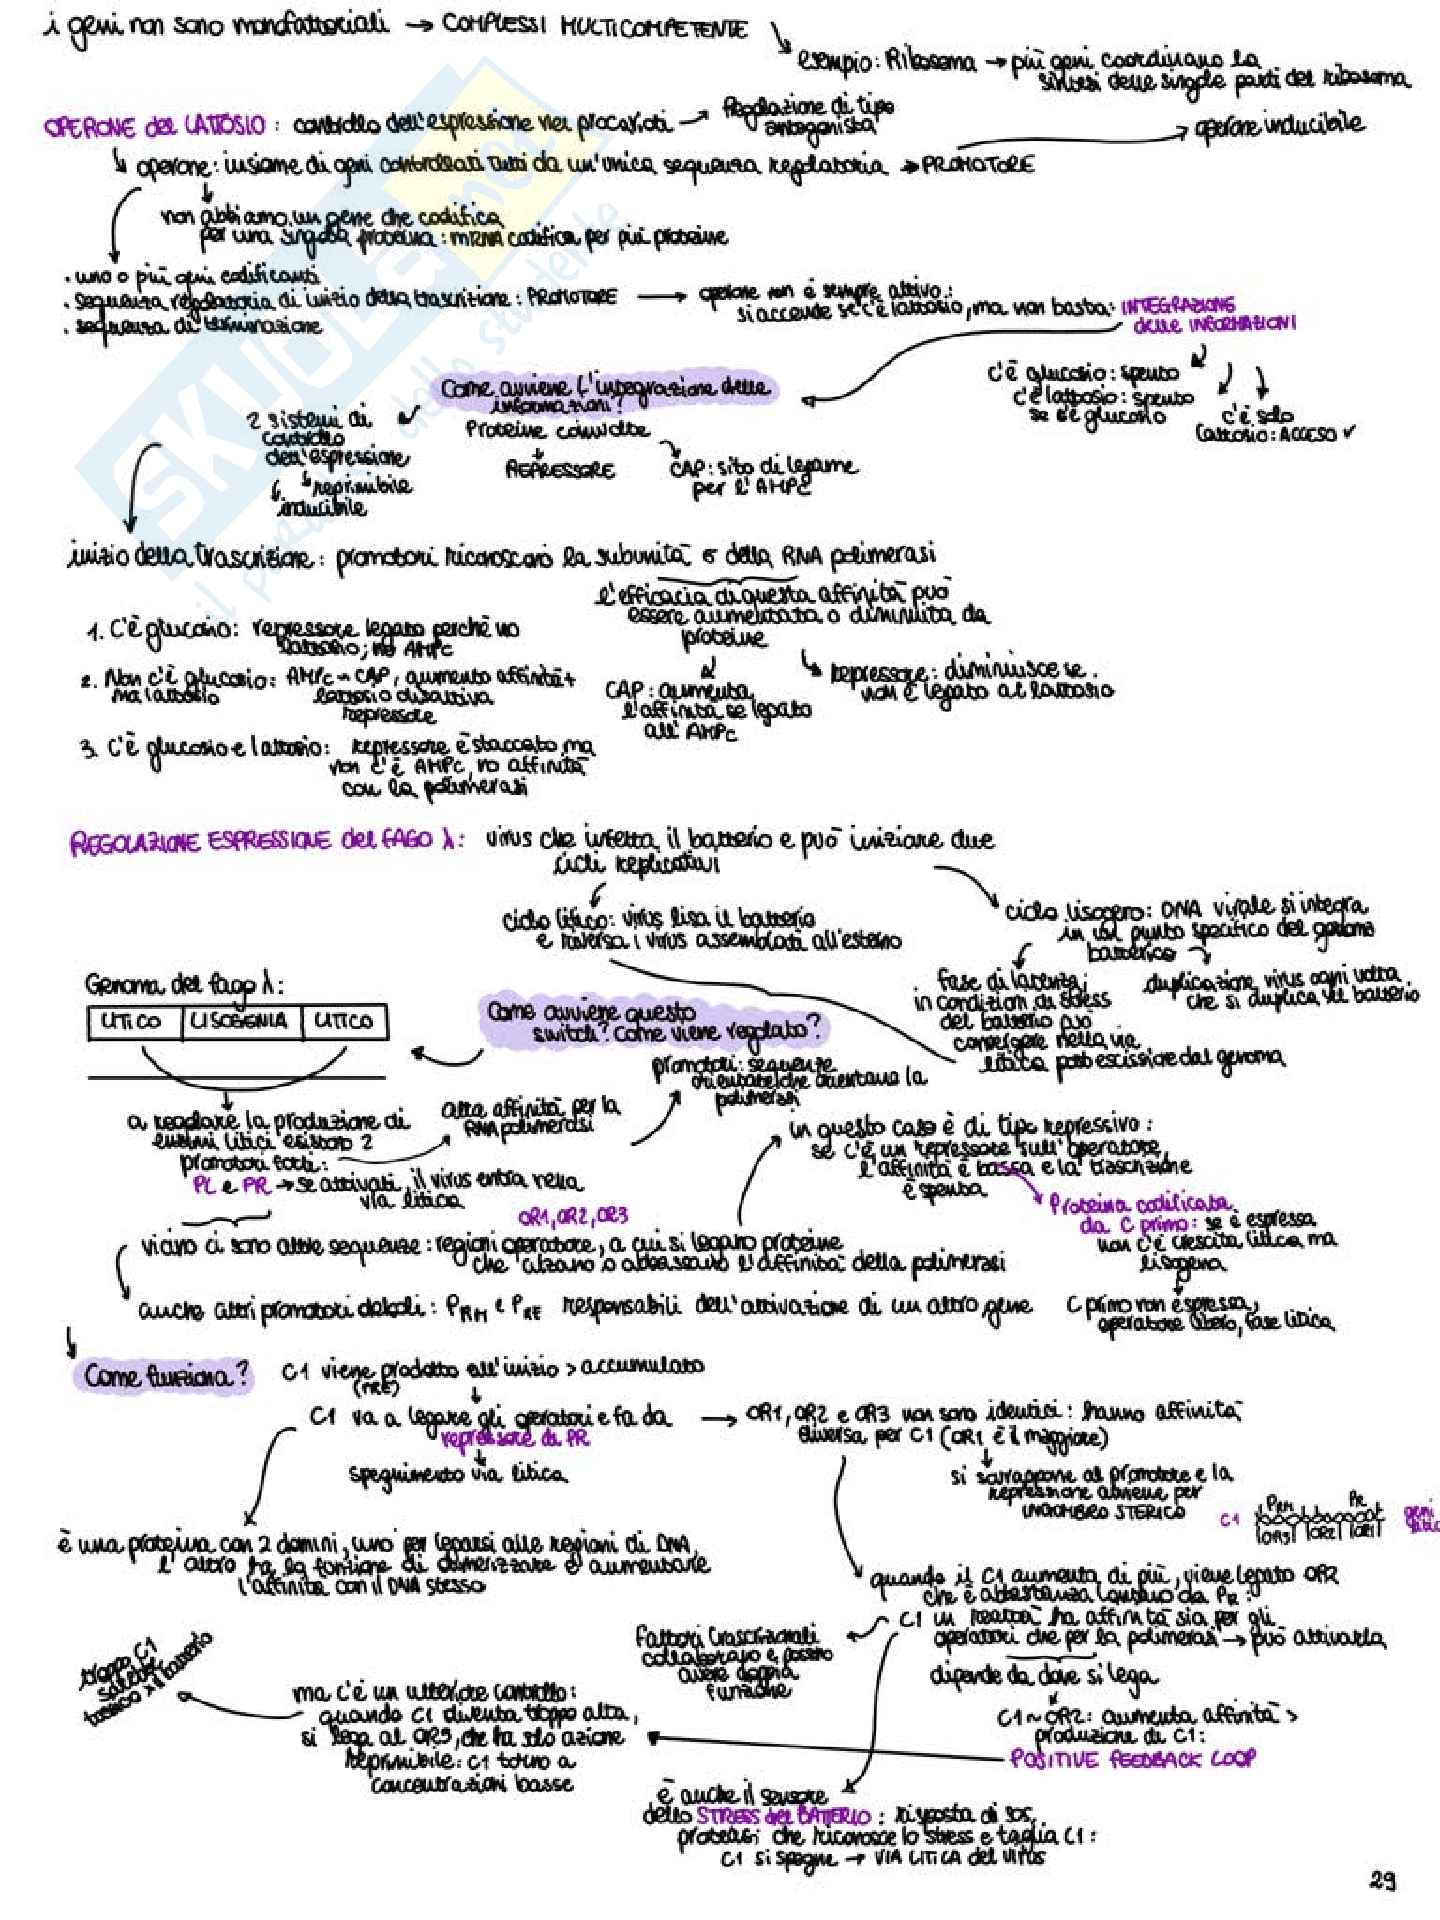 i geni non sono monofattoriali → COMPLESSI MULTICOMPETENTE
esempio: Ribosoma → più geni coordinano la
sintesi delle singole parti del ribosoma
OPERONE del LATTOSIO: controllo dell'espressione nei procarioti → Regolazione di tipo
antagonista
operone inducibile
operone: insieme di geni controllati tutti da un'unica sequenza regolatoria → PROMOTORE
non abbiamo un gene che codifica
per una singola proteina: mRNA codifica per più proteine
. uno o più geni codificanti
. sequenza regolatoria di inizio della trascrizione: PROMOTORE → operone non è sempre attivo:
si accende se c'è lattosio, ma non basta: INTEGRAZIONE
delle INFORMAZIONI
. sequenza di terminazione
c'è glucosio: spento
c'è lattosio: spento
se c'è glucosio
c'è solo
lattosio: ACCESO ✓
Come avviene l'integrazione delle
informazioni?
Proteine coinvolte
REPRESSORE
CAP: sito di legame
per l'AMPc
2 sistemi di
controllo
dell'espressione
reprimibile
inducibile
inizio della trascrizione: promotori riconoscono la subunità σ della RNA polimerasi
l'efficacia di questa affinità può
essere aumentata o diminuita da
proteine
CAP: aumenta
l'affinità se legato
all'AMPc
repressore: diminuisce se
non è legato al lattosio
1. C'è glucosio: repressore legato perchè no
lattosio; no AMPc
2. Non c'è glucosio: AMPc ~ CAP, aumento affinità +
ma lattosio
lattosio disattiva
repressore
3. C'è glucosio e lattosio: repressore è staccato ma
non c'è AMPc, no affinità
con la polimerasi
REGOLAZIONE ESPRESSIONE del FAGO λ: virus che infetta il batterio e può iniziare due
cicli replicativi
ciclo litico: virus lisa il batterio
e riversa i virus assemblati all'esterno
ciclo lisogeno: DNA virale si integra
in un punto specifico del genoma
batterico
fase di latenza;
in condizioni di stress
del batterio può
convergere nella via
litica post escissione dal genoma
duplicazione virus ogni volta
che si duplica il batterio
Genoma del fago λ:
LITICO LISOGENIA LITICO
Come avviene questo
switch? Come viene regolato?
promotori: sequenze
orientate che orientano la
polimerasi
a regolare la produzione di
enzimi litici esistono 2
promotori forti:
PL e PR → se attivati, il virus entra nella
via litica
alta affinità per la
RNA polimerasi
in questo caso è di tipo repressivo:
se c'è un repressore sull'operatore,
l'affinità è bassa e la trascrizione
è spenta
Proteina codificata
da C primo: se è espressa
non c'è crescita litica ma
lisogena
C primo non espressa,
operatore libero, fase litica
OR1, OR2, OR3
vicino ci sono altre sequenze: regioni operatore, a cui si legano proteine
che alzano o abbassano l'affinità della polimerasi
anche altri promotori deboli: PRM e PRE responsabili dell'attivazione di un altro gene
Come funziona? C1 viene prodotto all'inizio > accumulato
(PRE)
C1 va a legare gli operatori e fa da
repressore di PR
spegnimento via litica
→ OR1, OR2 e OR3 non sono identici: hanno affinità
diversa per C1 (OR1 è il maggiore)
si sovrappone al promotore e la
repressione avviene per
INGOMBRO STERICO
C1 PRM PR geni
OR3 OR2 OR1
è una proteina con 2 domini, uno per legarsi alle regioni di DNA,
l'altro ha la funzione di dimerizzare e aumentare
l'affinità con il DNA stesso
quando il C1 aumenta di più, viene legato OR2
che è abbastanza lontano da PR:
C1 in realtà ha affinità sia per gli
operatori che per la polimerasi → può attivarla
dipende da dove si lega
C1 ~ OR2: aumenta affinità >
produzione di C1:
POSITIVE FEEDBACK LOOP
Fattori trascrizionali
collaborano e possono
avere doppia
funzione
ma c'è un ulteriore controllo:
quando C1 diventa troppo alta,
si lega al OR3, che ha solo azione
reprimibile: C1 torna a
concentrazioni basse
troppo C1
sarebbe
tossico x il batterio
è anche il sensore
dello STRESS del BATTERIO: risposta di SOS,
proteasi che riconosce lo stress e taglia C1:
C1 si spegne → VIA LITICA del VIRUS
29